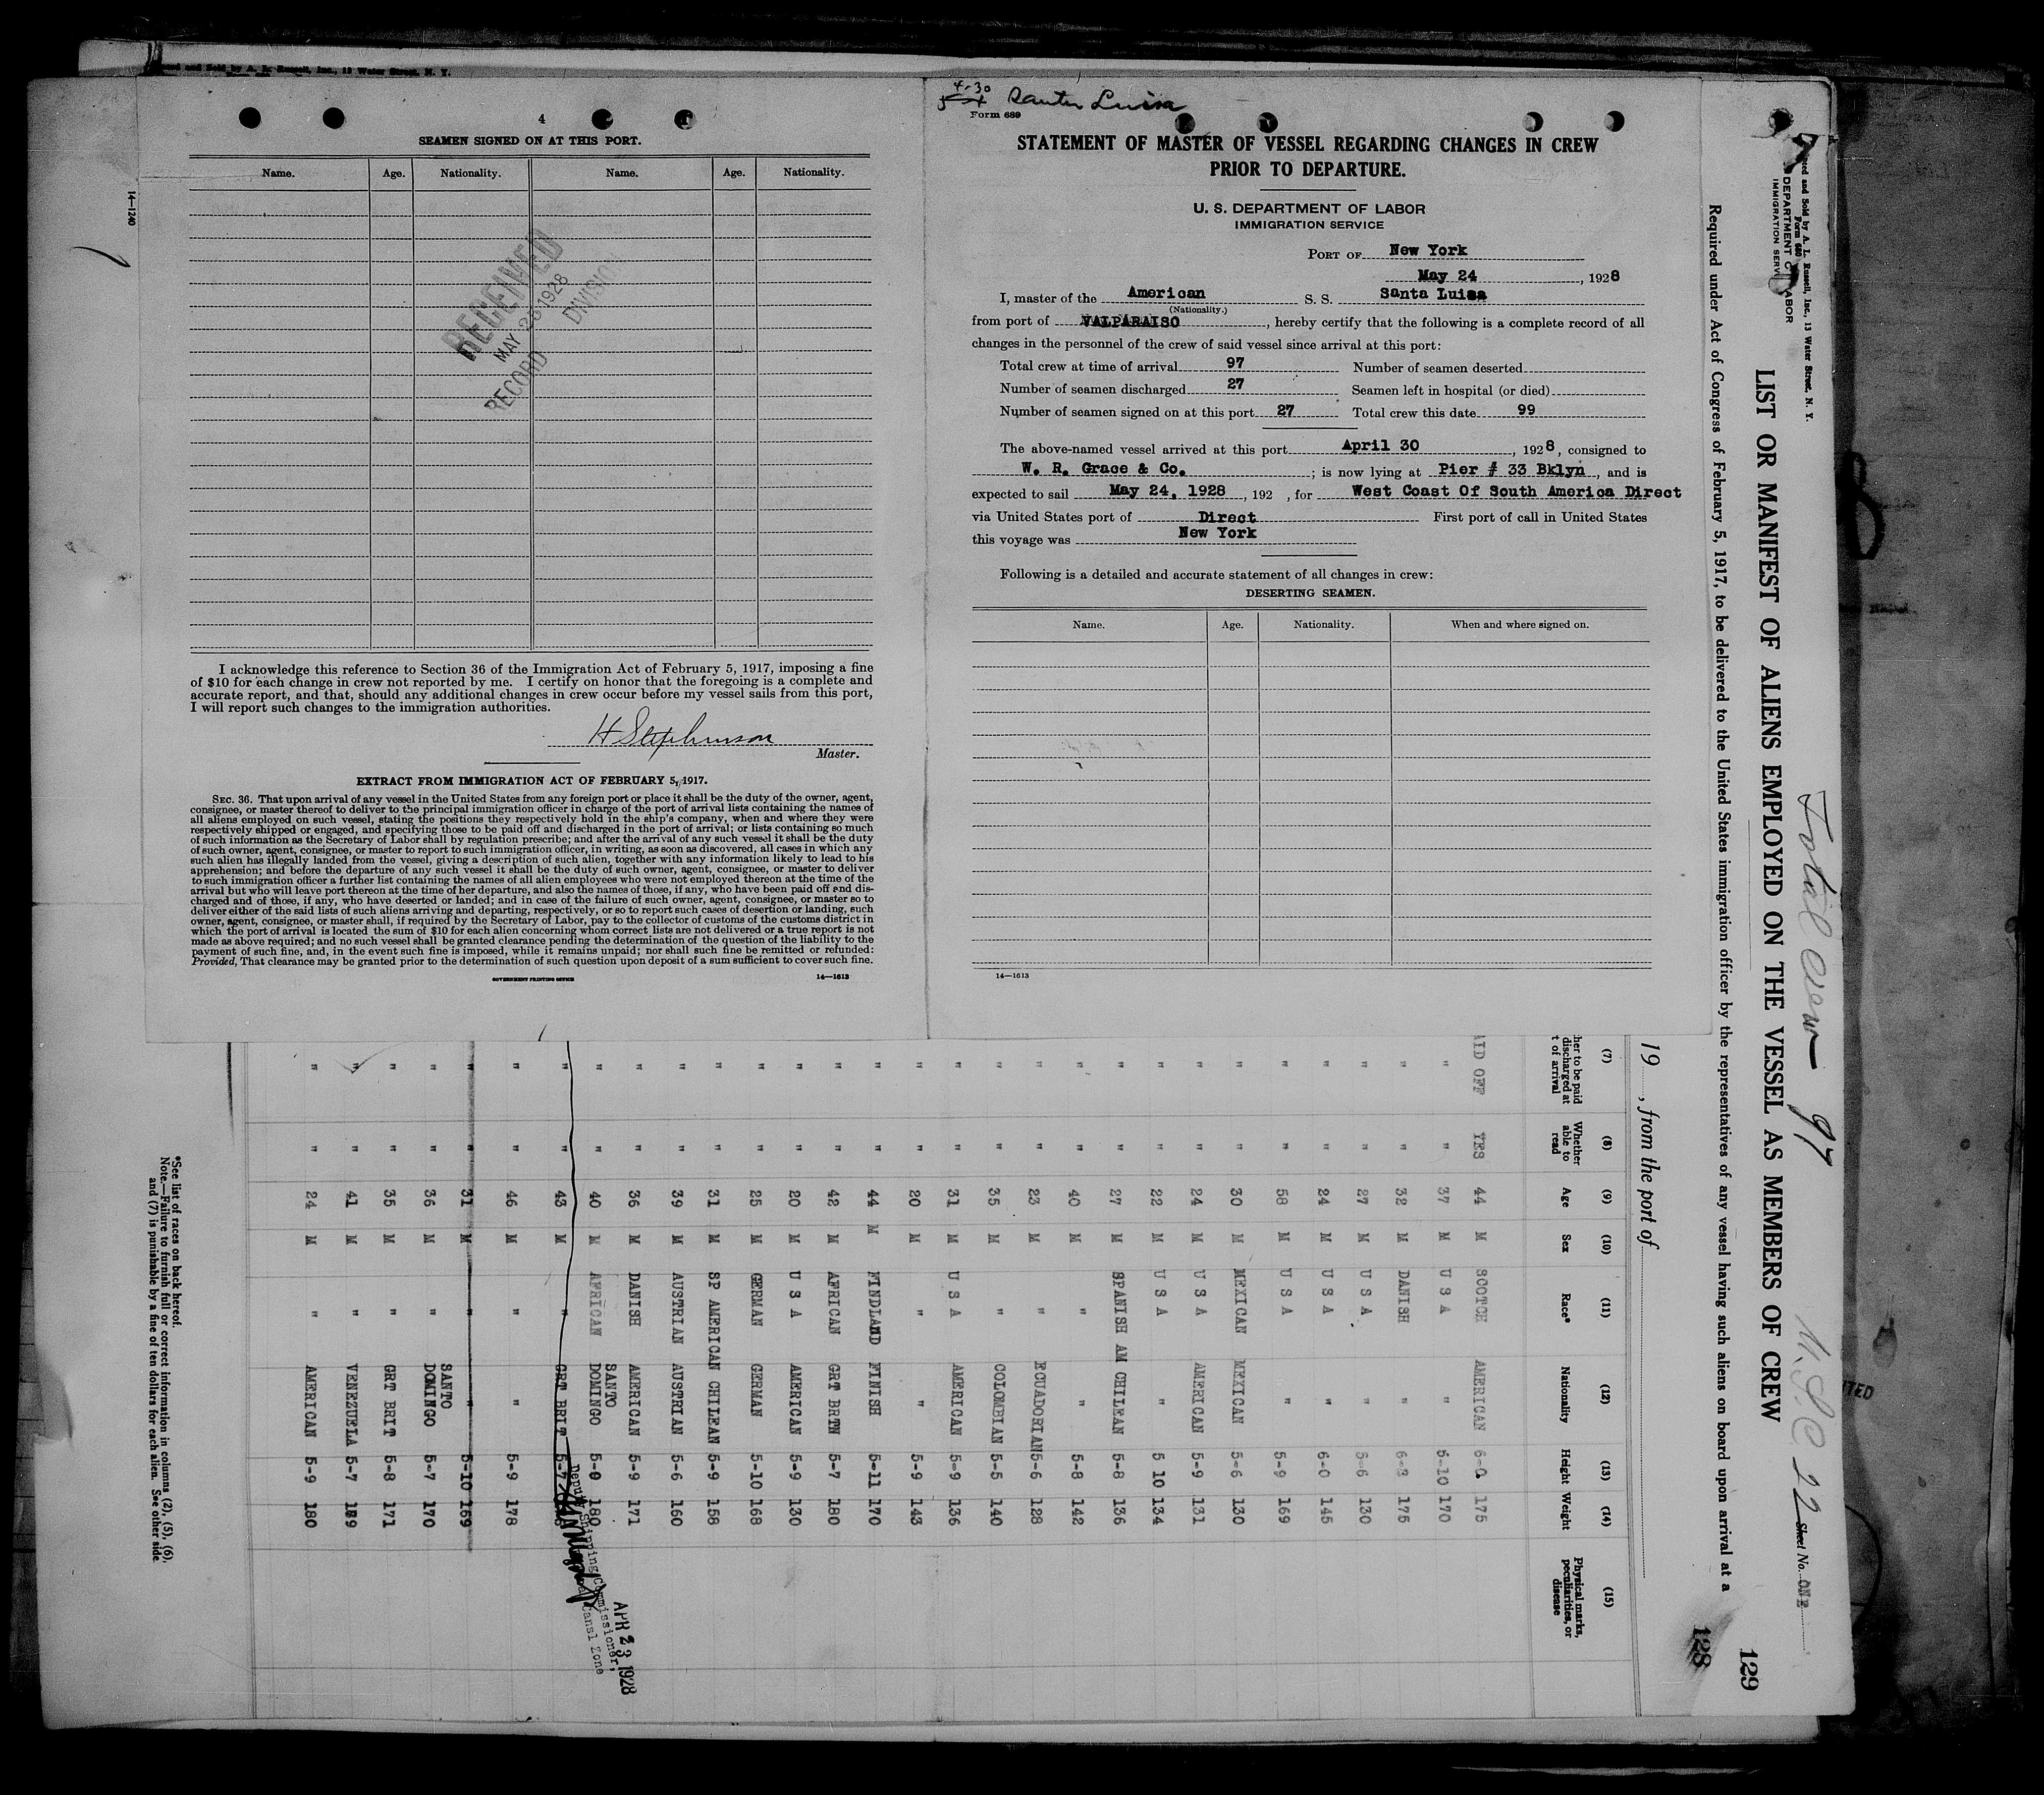 Printed and Sold by A. L. Russell, Inc., 13 Water Street, N. Y.
4
SEAMEN SIGNED ON AT THIS PORT.
Name. Age. Nationality. Name. Age. Nationality.
14—1240
RECEIVED
MAY 25 1928
RECORD DIVISION
I acknowledge this reference to Section 36 of the Immigration Act of February 5, 1917, imposing a fine
of $10 for each change in crew not reported by me. I certify on honor that the foregoing is a complete and
accurate report, and that, should any additional changes in crew occur before my vessel sails from this port,
I will report such changes to the immigration authorities.
H Stephenson
Master.
EXTRACT FROM IMMIGRATION ACT OF FEBRUARY 5, 1917.
SEC. 36. That upon arrival of any vessel in the United States from any foreign port or place it shall be the duty of the owner, agent,
consignee, or master thereof to deliver to the principal immigration officer in charge of the port of arrival lists containing the names of
all aliens employed on such vessel, stating the positions they respectively hold in the ship's company, when and where they were
respectively shipped or engaged, and specifying those to be paid off and discharged in the port of arrival; or lists containing so much
of such information as the Secretary of Labor shall by regulation prescribe; and after the arrival of any such vessel it shall be the duty
of such owner, agent, consignee, or master to report to such immigration officer, in writing, as soon as discovered, all cases in which any
such alien has illegally landed from the vessel, giving a description of such alien, together with any information likely to lead to his
apprehension; and before the departure of any such vessel it shall be the duty of such owner, agent, consignee, or master to deliver
to such immigration officer a further list containing the names of all alien employees who were not employed thereon at the time of the
arrival but who will leave port thereon at the time of her departure, and also the names of those, if any, who have been paid off and dis-
charged and of those, if any, who have deserted or landed; and in case of the failure of such owner, agent, consignee, or master so to
deliver either of the said lists of such aliens arriving and departing, respectively, or so to report such cases of desertion or landing, such
owner, agent, consignee, or master shall, if required by the Secretary of Labor, pay to the collector of customs of the customs district in
which the port of arrival is located the sum of $10 for each alien concerning whom correct lists are not delivered or a true report is not
made as above required; and no such vessel shall be granted clearance pending the determination of the question of the liability to the
payment of such fine, and, in the event such fine is imposed, while it remains unpaid; nor shall such fine be remitted or refunded:
Provided, That clearance may be granted prior to the determination of such question upon deposit of a sum sufficient to cover such fine.
GOVERNMENT PRINTING OFFICE 14—1613
4-30
Santa Luisa
Form 689
STATEMENT OF MASTER OF VESSEL REGARDING CHANGES IN CREW
PRIOR TO DEPARTURE.
U. S. DEPARTMENT OF LABOR
IMMIGRATION SERVICE
PORT OF New York
May 24, 1928
I, master of the American S. S. Santa Luisa
(Nationality.)
from port of VALPARAISO, hereby certify that the following is a complete record of all
changes in the personnel of the crew of said vessel since arrival at this port:
Total crew at time of arrival 97 Number of seamen deserted
Number of seamen discharged 27 Seamen left in hospital (or died)
Number of seamen signed on at this port 27 Total crew this date 99
The above-named vessel arrived at this port April 30, 1928, consigned to
W. R. Grace & Co. ; is now lying at Pier # 33 Bklyn, and is
expected to sail May 24, 1928, 192 , for West Coast Of South America Direct
via United States port of Direct First port of call in United States
this voyage was New York
Following is a detailed and accurate statement of all changes in crew:
DESERTING SEAMEN.
Name. Age. Nationality. When and where signed on.
14—1613
Printed and Sold by A. L. Russell, Inc., 13 Water Street, N. Y.
Form 680
DEPARTMENT OF LABOR
IMMIGRATION SERVICE
Total crew 97
U.S.C 22
Sheet No. ONE
LIST OR MANIFEST OF ALIENS EMPLOYED ON THE VESSEL AS MEMBERS OF CREW
129
128
Required under Act of Congress of February 5, 1917, to be delivered to the United States immigration officer by the representatives of any vessel having such aliens on board upon arrival at a
19 , from the port of
(7) (8) (9) (10) (11) (12) (13) (14) (15)
her to be paid discharged at t of arrival Whether able to read Age Sex Race* Nationality Height Weight Physical marks, peculiarities, or disease
AID OFF YES 44 M SCOTCH AMERICAN 6-0 175
" " 37 M U S A " 5-10 170
" " 32 M DANISH " 6-3 175
" " 27 M U S A " 5-6 130
" " 24 M U S A " 6-0 145
" " 58 M U S A " 5-9 169
" " 30 M MEXICAN MEXICAN 5-6 130
" " 24 M U S A AMERICAN 5-9 131
" " 22 M U S A " 5 10 134
" " 27 M SPANISH AM CHILEAN 5-8 136
" " 40 M " " 5-8 142
" " 23 M " ECUADORIAN 5-6 128
" " 35 M " COLOMBIAN 5-5 140
" " 31 M U S A AMERICAN 5-9 136
" " 20 M " " 5-9 143
" " 44 M FINDLAND FINISH 5-11 170
" " 42 M AFRICAN GRT BRTN 5-7 180
" " 20 M U S A AMERICAN 5-9 130
" " 25 M GERMAN GERMAN 5-10 168
" " 31 M SP AMERICAN CHILEAN 5-9 158
" " 39 M AUSTRIAN AUSTRIAN 5-6 160
" " 36 M DANISH AMERICAN 5-9 171
" " 40 M AFRICAN SANTO DOMINGO 5-0 180
" " 43 M " GRT BRIT 5-7
" " 46 M " " 5-9 178
" " 31 M " " 5-10 159
" " 36 M " SANTO DOMINGO 5-7 170
" " 35 M " GRT BRIT 5-8 171
" " 41 M " VENEZUELA 5-7 159
" " 24 M " AMERICAN 5-9 180
APR 23 1928
Deputy Shipping Commissioner,
Canal Zone
*See list of races on back hereof.
Note.—Failure to furnish full or correct information in columns (2), (5), (6),
and (7) is punishable by a fine of ten dollars for each alien. See other side